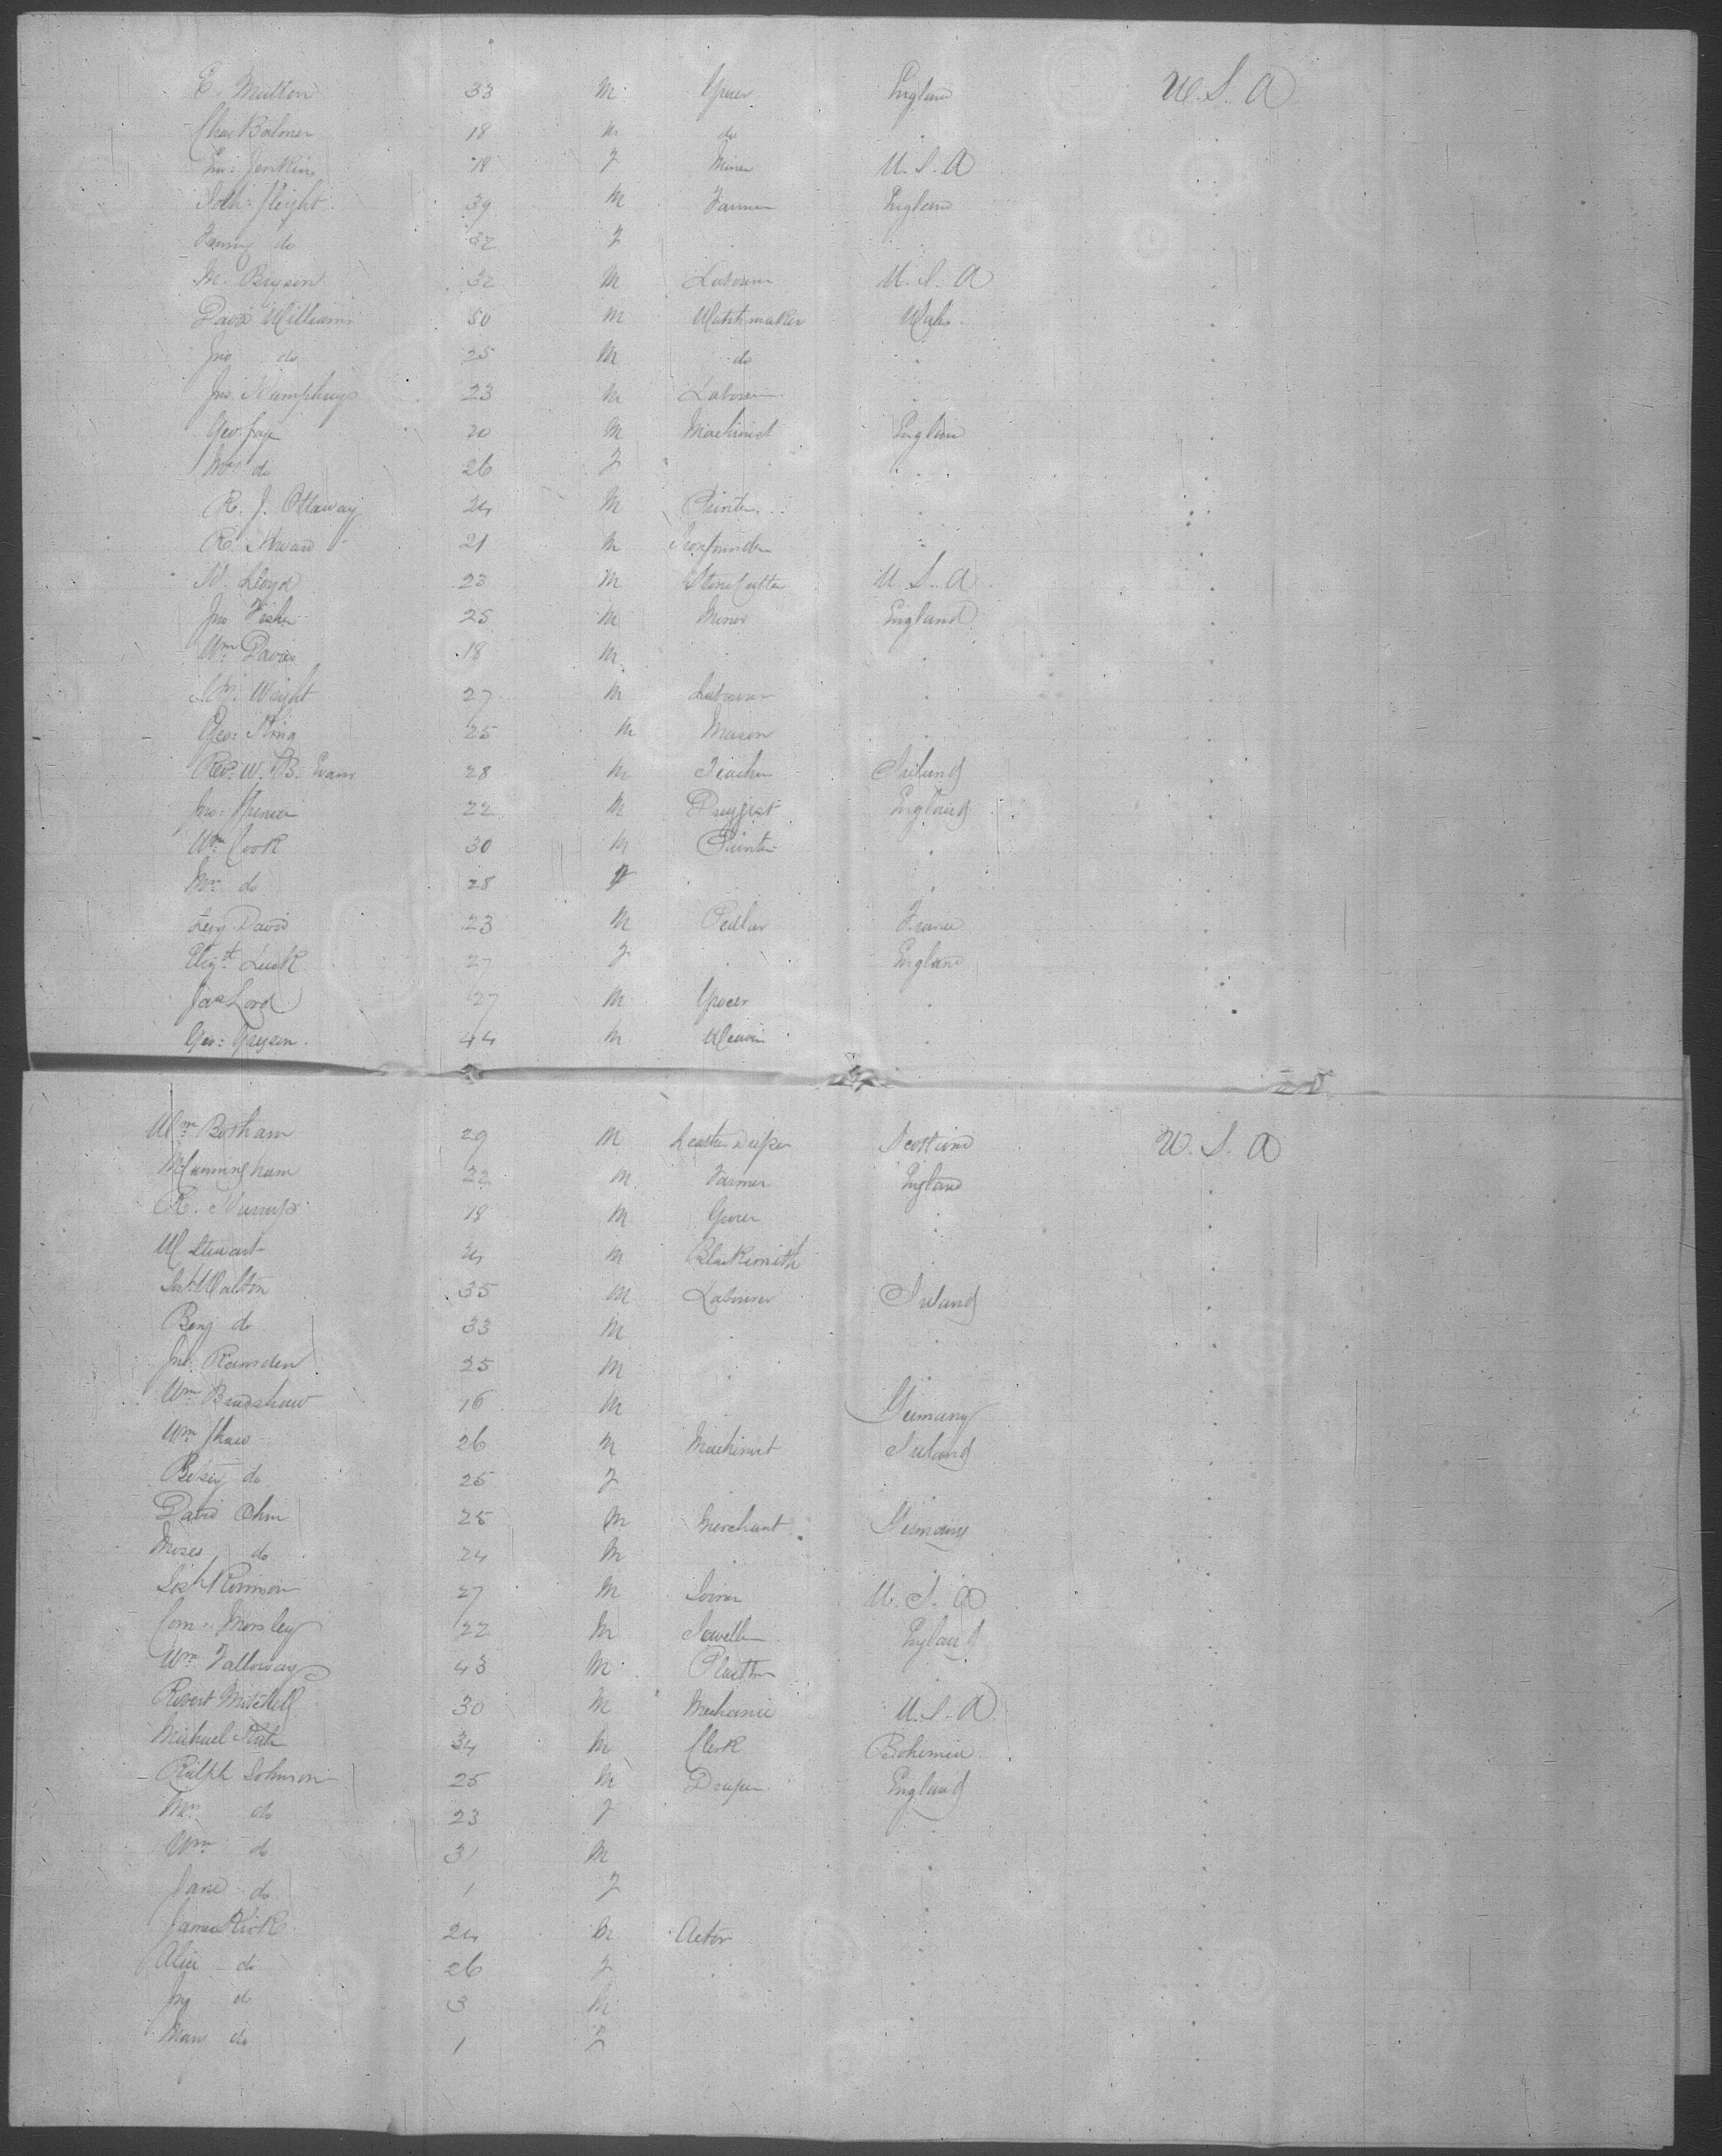 E. Multon 33 M Grocer England U.S.A
Chas 18 M do
Jenkins 18 F Miner U.S.A
39 M Farmer England
Fanny do 32 F
M. Bryson 32 M Labourer U.S.A
David Williams 50 M Watchmaker Wales
Jno do 25 M do
Jno. Humphreys 23 M Labourer
Geo. 20 M Machinist England
Mrs do 26 F
R. J. Ottaway 24 M
R. 21 M Ironfounder
Lloyd 23 M Stone Cutter U.S.A
Jno Fisher 25 M Miner England
Wm Davies 18 M
Wright 27 M Labourer
Geo: King 25 M Mason
Revd. W. B. Evans 28 M Teacher Ireland
Jno: Spencer 22 M Druggist England
Wm Cook 30 M
Mrs do 28 F
Levy David 23 M Pedlar France
27 F England
Jas Lord 27 M Grocer
Geo: Greyson 44 M
Wm Botham 29 M Scotland U.S.A
Cunningham 22 M Farmer England
R. 18 M Grocer
W. Stewart 24 M Blacksmith
Walton 35 M Labourer Ireland
Benj do 33 M
Jno: Ramsden 25 M
Wm Bradshaw 16 M Germany
Wm Shaw 26 M Machinist Ireland
Betsy do 25 F
David Ohm 25 M Merchant Germany
Moses do 24 M
27 M U.S.A
Morsley 22 M England
Wm 43 M
Robert Mitchell 30 M Mechanic U.S.A
Michael 34 M Clerk Bohemia
Ralph Johnson 25 M Draper England
Mrs do 23 F
Wm do 31 M
Jane do 1 F
James Kirk 24 M Actor
Alice do 26 F
Jno do 3 M
Mary do 1 F